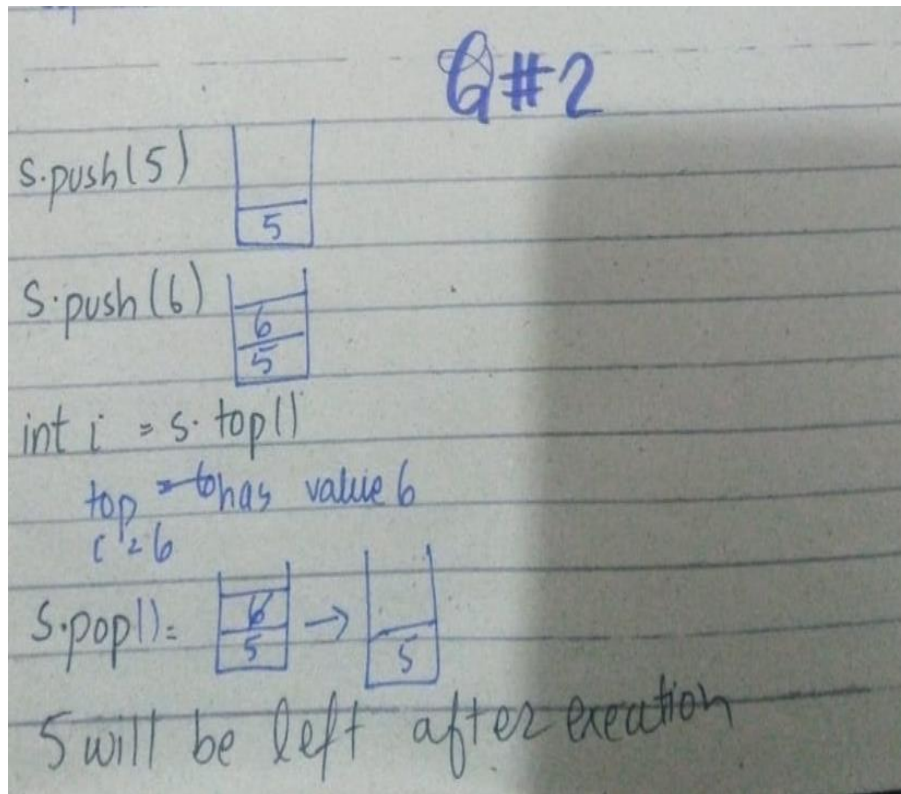 Q#2
s.push(5)
5
s.push(6)
6
5
int i = s.top()
top has value 6
i = 6
s.pop()=
6
5
→
5
5 will be left after exeation